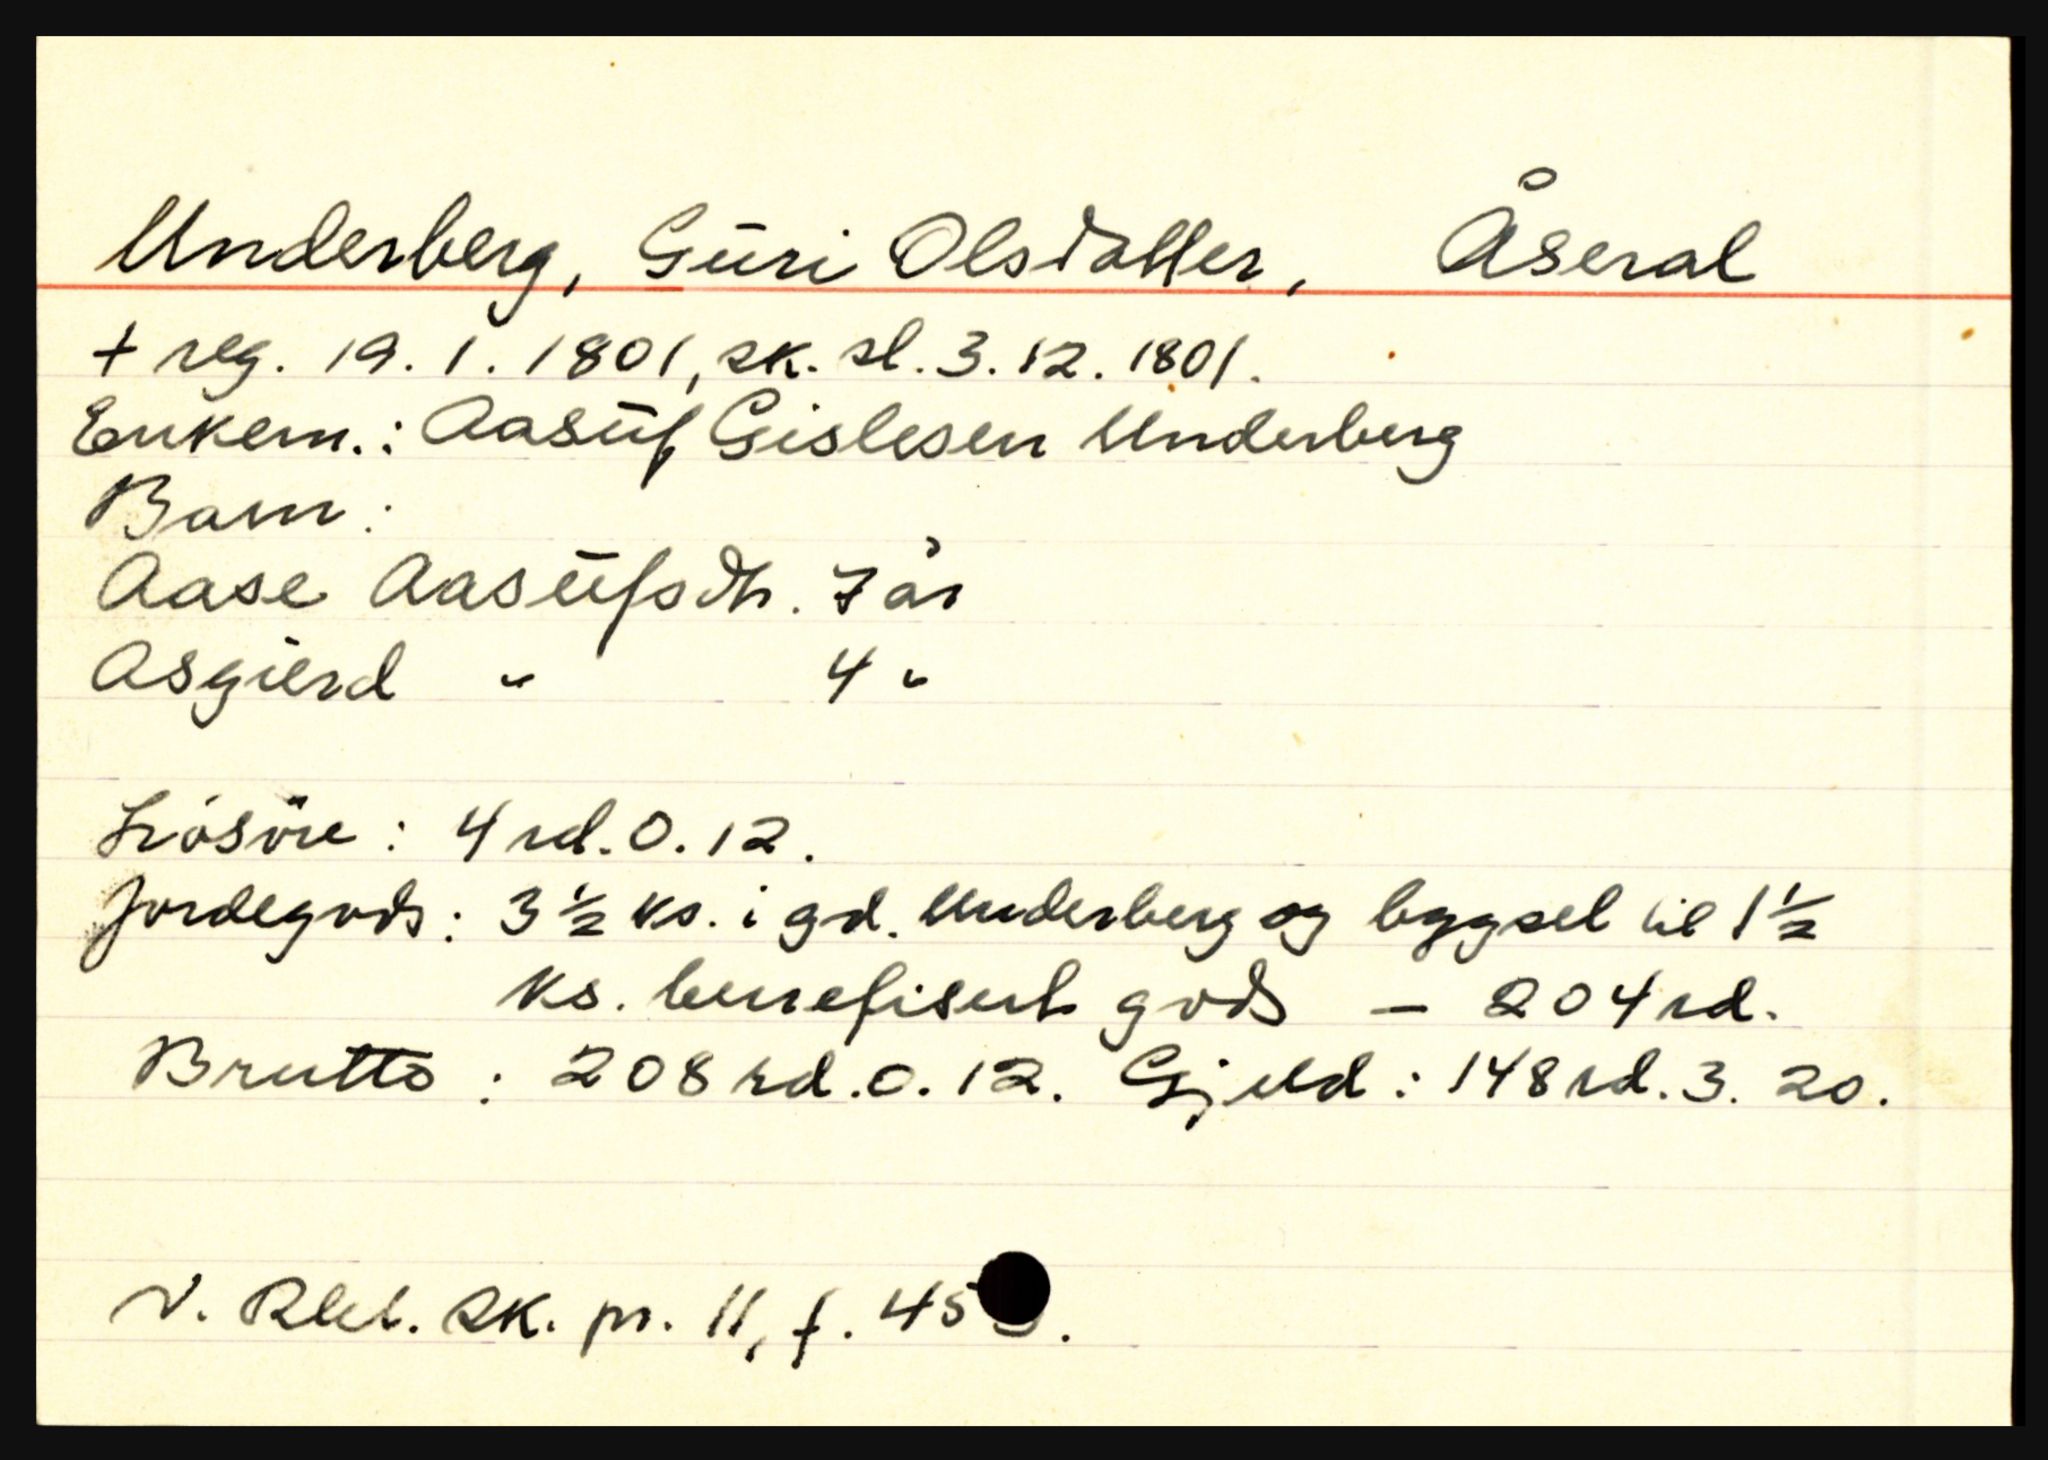 Underberg, Guri Olsdatter, Åseral
+ reg. 19. 1. 1801, sk. sl. 3. 12. 1801.
Enkem.: Aasuf Gislesen Underberg
Barn:
Aase Aasufsdtr. 7 år
Asgierd " 4 "
Lösöre: 4 rd. 0. 12.
Jordegods: 3 ½ ks. i gd. Underberg og bygsel til 1 ½
ks. benefisert gods - 204 rd.
Brutto: 208 rd. 0. 12. Gjeld: 148 rd. 3. 20.
V. Rbl. sk. pr. 11, f. 45